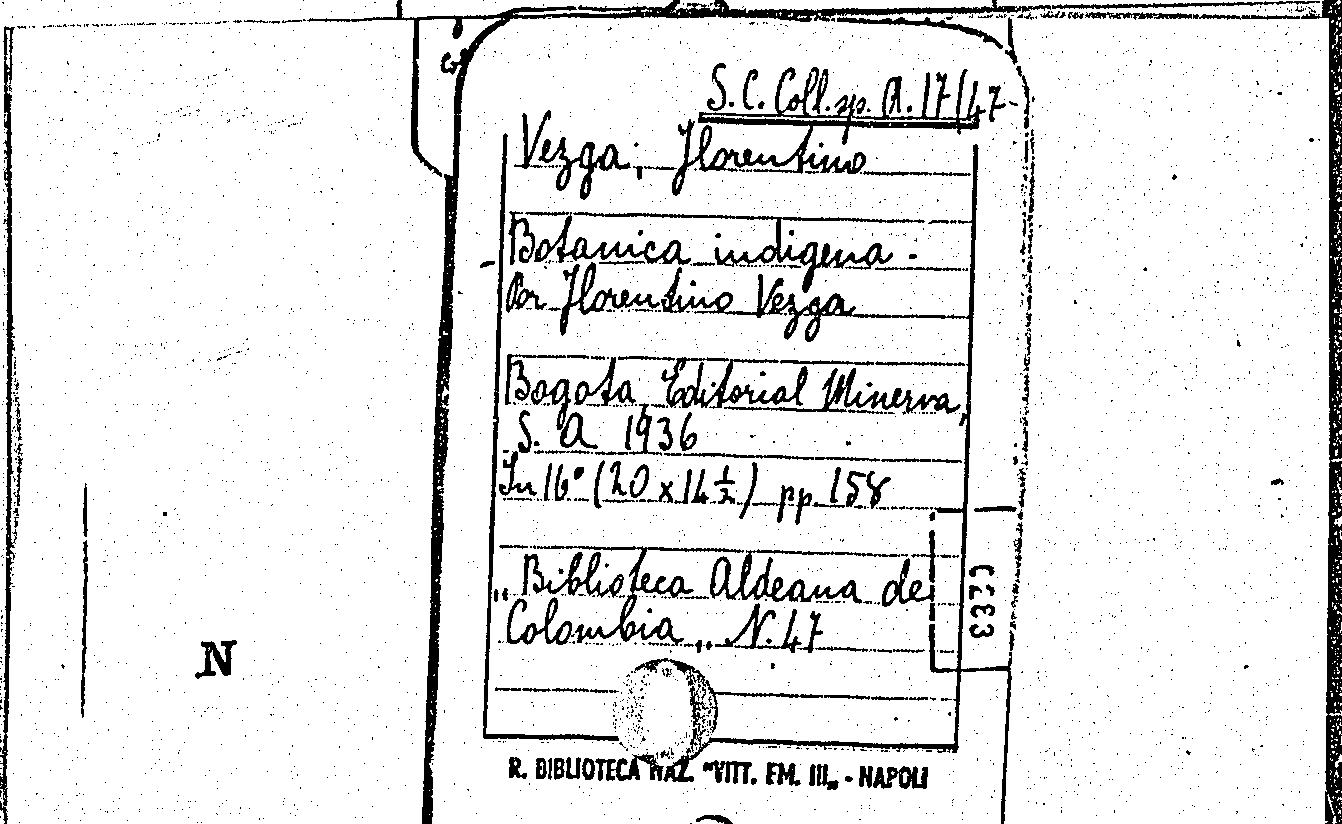 S. C. Coll. sp. A. 17/47
Vezga, Florentino
Botanica indigena -
Por Florentino Vezga
Bogota Editorial Minerva,
S. A 1936
In 16° (20 x 14 ½) pp. 158
"Biblioteca Aldeana de
Colombia„ N. 47
N
R. BIBLIOTECA NAZ. "VITT. EM. III„ - NAPOLI